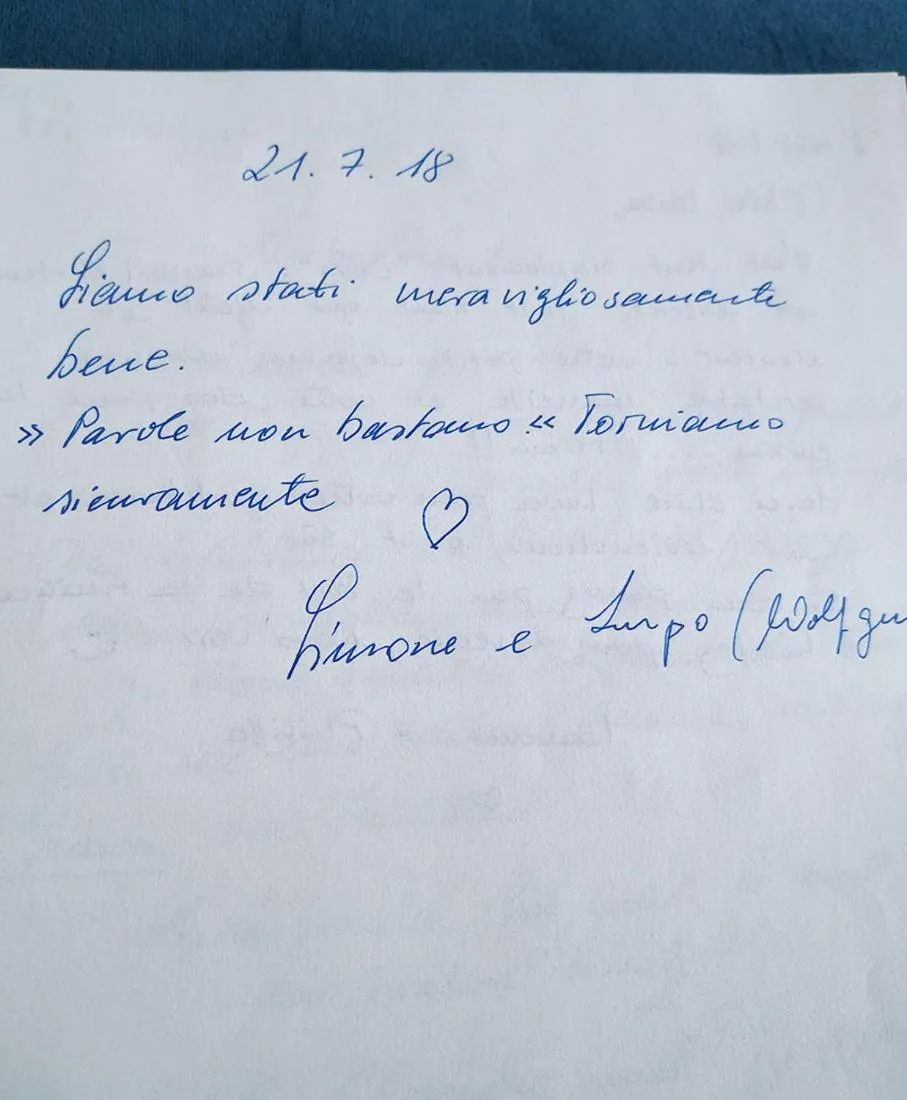 21. 7. 18
Siamo stati meravigliosamente
bene.
» Parole non bastano.« Torniamo
sicuramente ♡
Simone e (Wolfgan